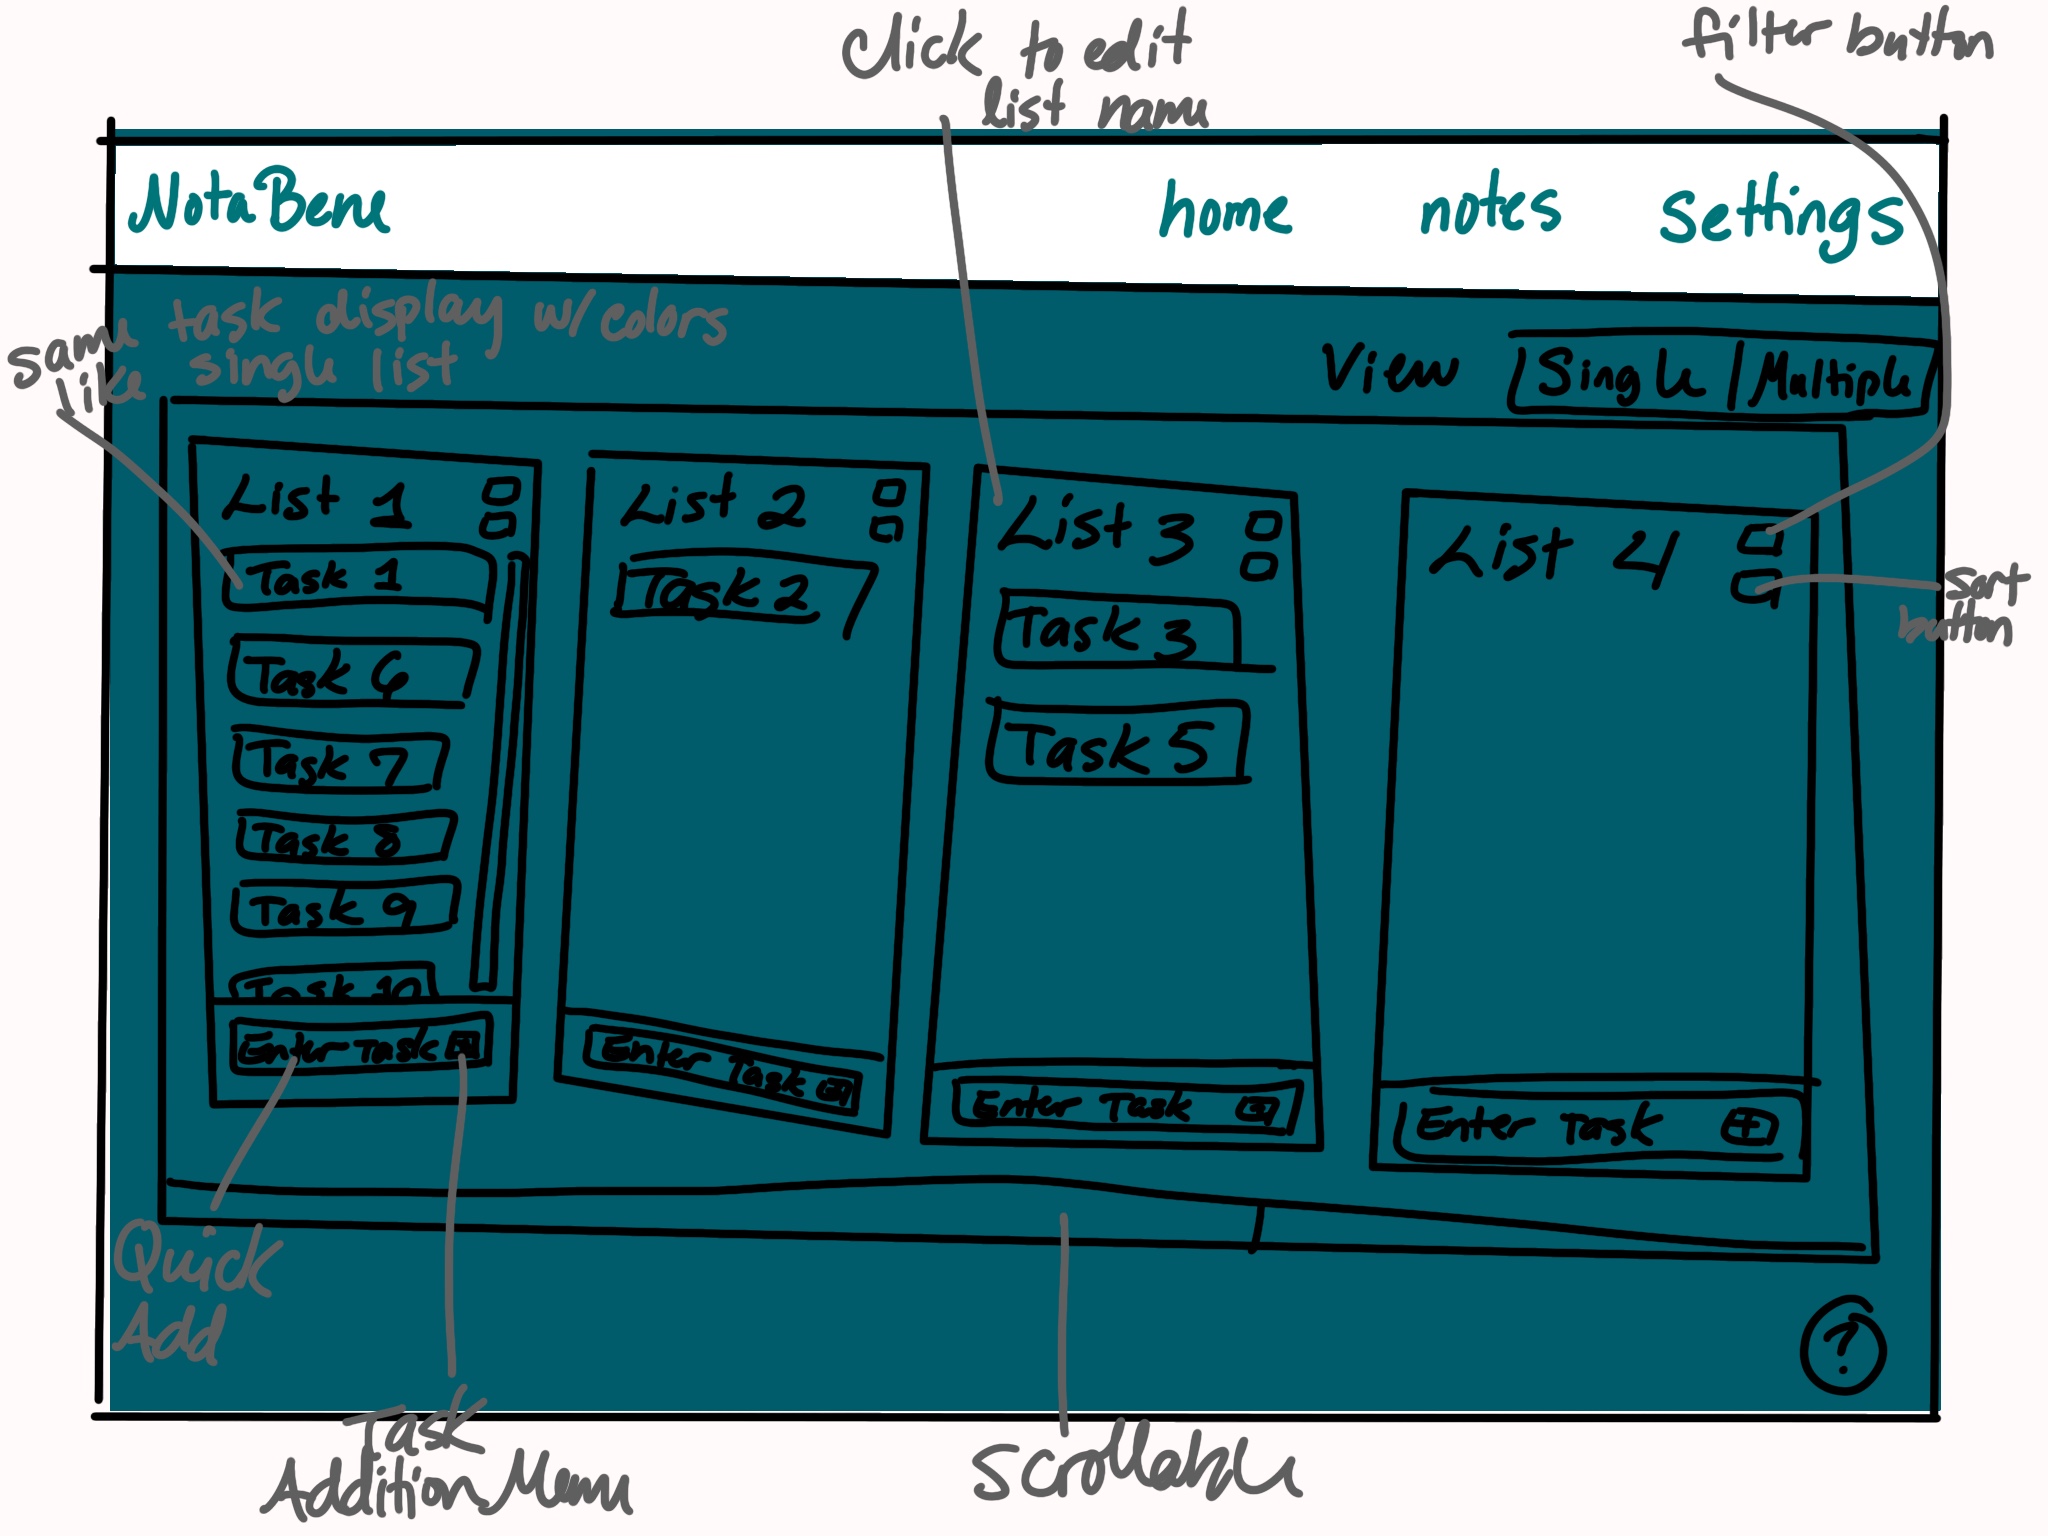 Click to edit
list name
filter button
NotaBene
home
notes
settings
same task display w/colors
like single list
View
Single | Multiple
List 1
Task 1
Task 6
Task 7
Task 8
Task 9
Task 10
Enter Task +
List 2
Task 2
Enter Task +
List 3
Task 3
Task 5
Enter Task +
List 4
Enter Task +
sort
button
Quick
Add
Task
Addition Menu
Scrollable
?